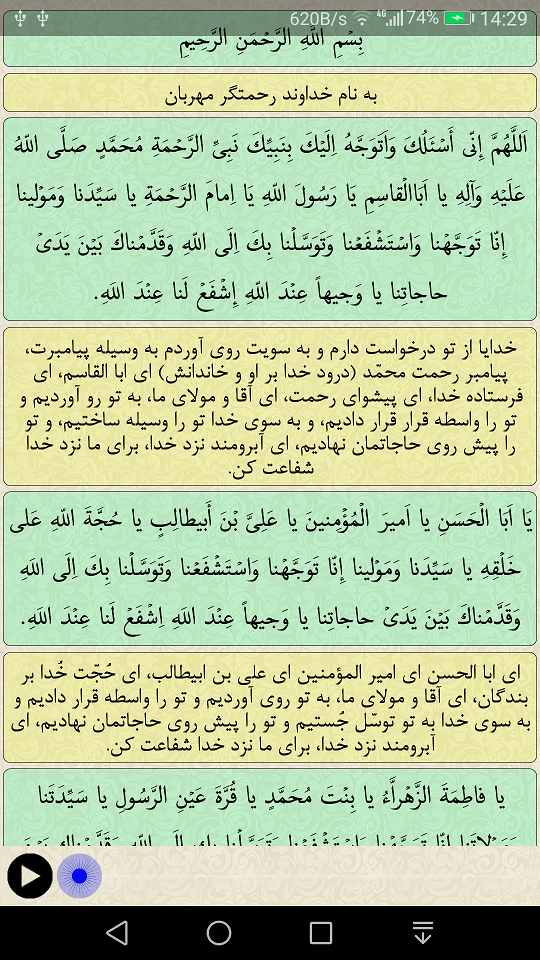 620B/s 4G 74% 14:29
بِسْمِ اللَّهِ الرَّحْمَنِ الرَّحِيمِ
به نام خداوند رحمتگر مهربان
اَللَّهُمَّ إِنّى أَسْئَلُكَ وَاَتَوَجَّهُ اِلَيْكَ بِنَبِيِّكَ نَبِىِّ الرَّحْمَةِ مُحَمَّدٍ صَلَّى اللّهُ
عَلَيْهِ وَآلِهِ يا اَبَاالْقاسِمِ يا رَسُولَ اللّهِ يا اِمامَ الرَّحْمَةِ يا سَيِّدَنا وَمَوْلينا
اِنّا تَوَجَّهْنا وَاسْتَشْفَعْنا وَتَوَسَّلْنا بِكَ اِلَى اللّهِ وَقَدَّمْناكَ بَيْنَ يَدَىْ
حاجاتِنا يا وَجيهاً عِنْدَ اللّهِ إِشْفَعْ لَنا عِنْدَ اللهِ.
خدایا از تو درخواست دارم و به سویت روی آوردم به وسیله پیامبرت،
پیامبر رحمت محمّد (درود خدا بر او و خاندانش) ای ابا القاسم، ای
فرستاده خدا، ای پیشوای رحمت، ای آقا و مولای ما، به تو رو آوردیم و
تو را واسطه قرار قرار دادیم، و به سوی خدا تو را وسیله ساختیم، و تو
را پیش روی حاجاتمان نهادیم، ای آبرومند نزد خدا، برای ما نزد خدا
شفاعت کن.
يا اَبَا الْحَسَنِ يا اَميرَ الْمُؤْمِنينَ يا عَلِىَّ بْنَ أَبيطالِبٍ يا حُجَّةَ اللّهِ عَلى
خَلْقِهِ يا سَيِّدَنا وَمَوْلينا إِنّا تَوَجَّهْنا وَاسْتَشْفَعْنا وَتَوَسَّلْنا بِكَ اِلَى اللهِ
وَقَدَّمْناكَ بَيْنَ يَدَىْ حاجاتِنا يا وَجيهاً عِنْدَ اللهِ اِشْفَعْ لَنا عِنْدَ اللهِ.
ای ابا الحسن ای امیر المؤمنین ای علی بن ابیطالب، ای حُجّت خُدا بر
بندگان، ای آقا و مولای ما، به تو روی آوردیم و تو را واسطه قرار دادیم و
به سوی خدا به تو توسّل جُستیم و تو را پیش روی حاجاتمان نهادیم، ای
آبرومند نزد خدا، برای ما نزد خدا شفاعت کن.
يا فاطِمَةَ الزَّهْراَّءُ يا بِنْتَ مُحَمَّدٍ يا قُرَّةَ عَيْنِ الرَّسُولِ يا سَيِّدَتَنا